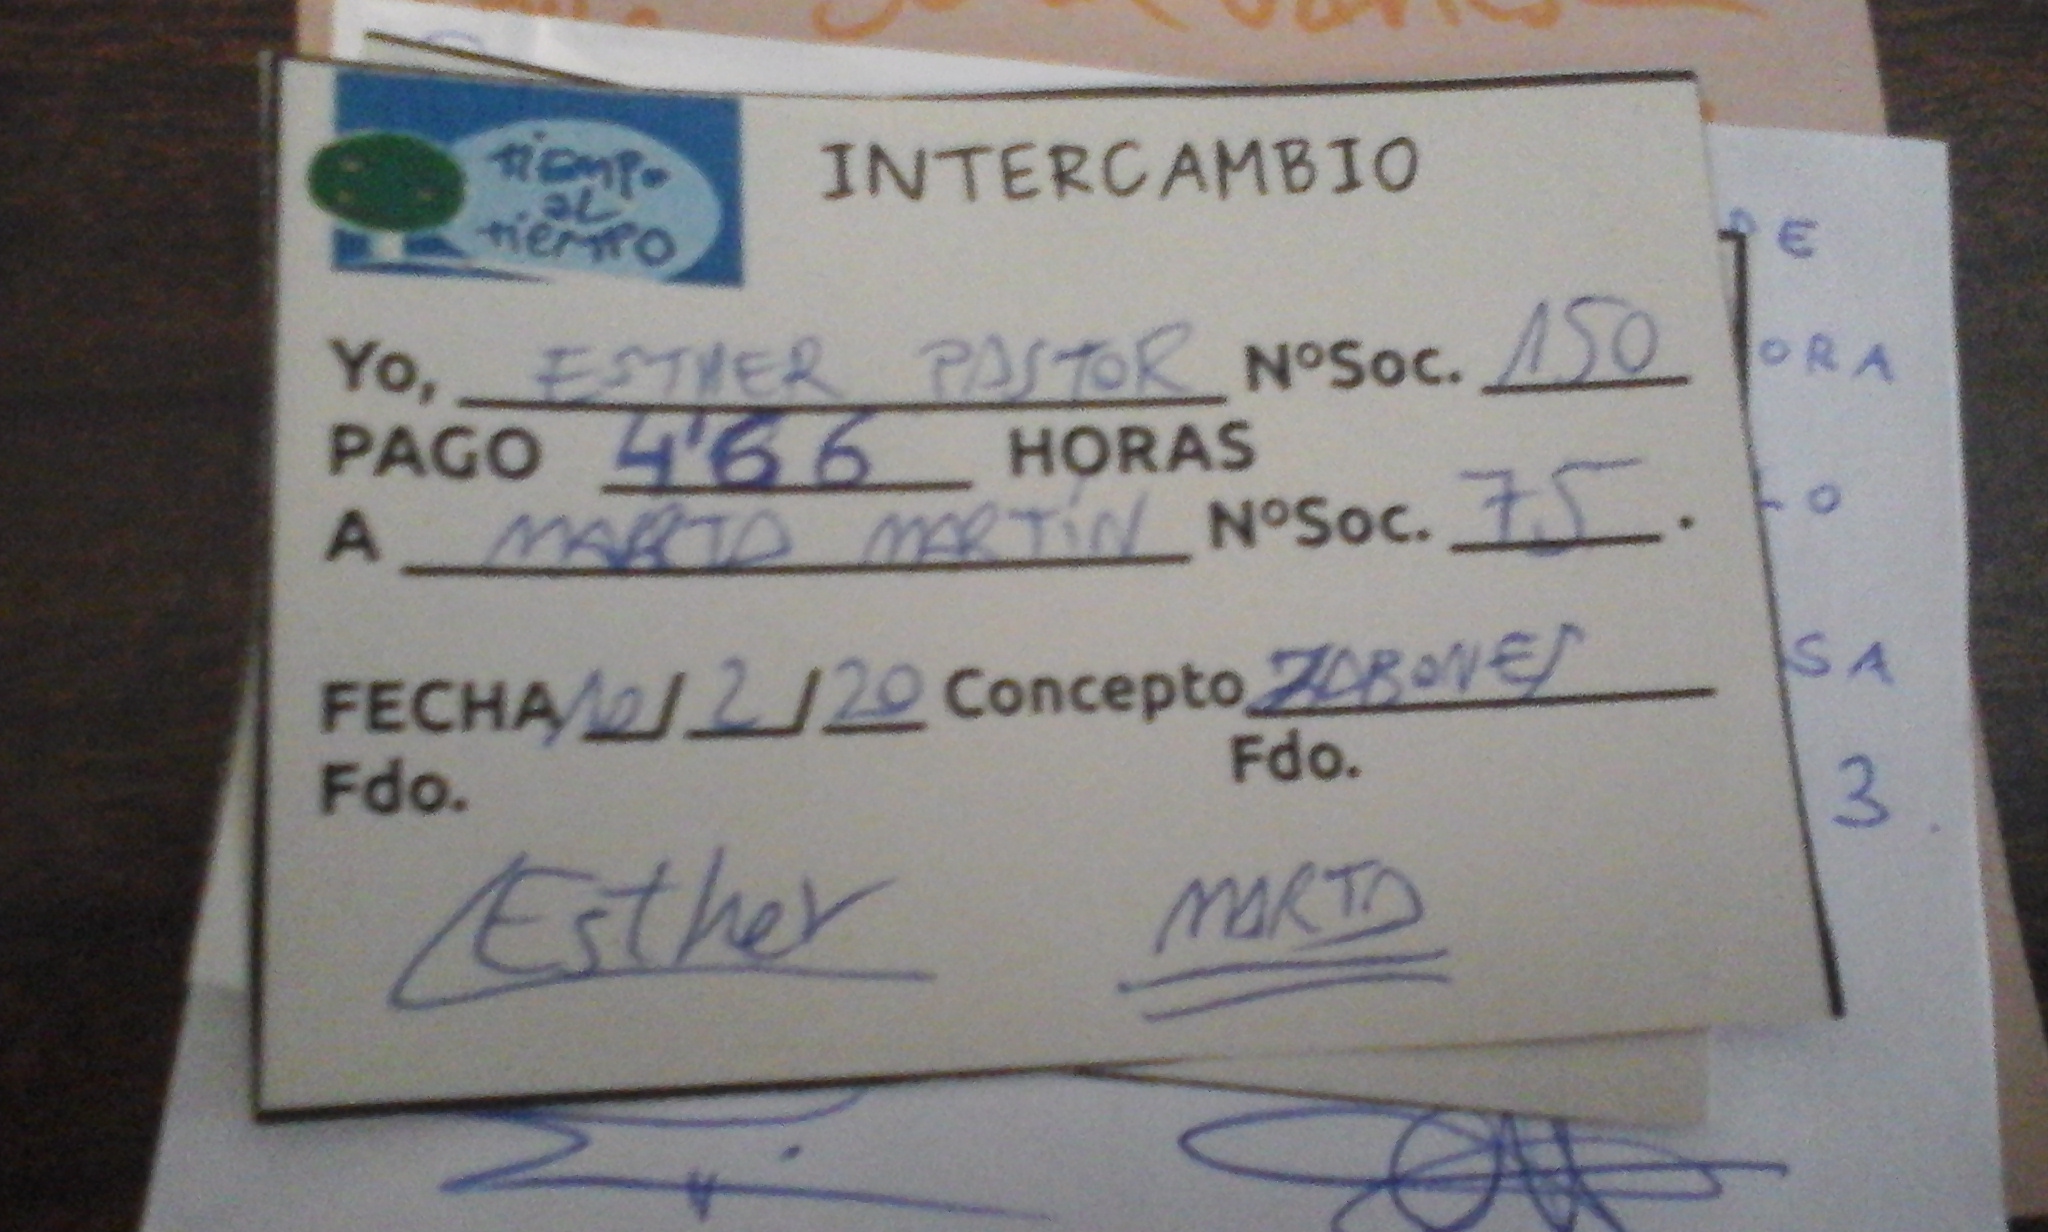 tiempo
al
tiempo
INTERCAMBIO
Yo, ESTHER PASTOR NºSoc. 150
PAGO 4'66 HORAS
A MARTA MARTÍN NºSoc. 75.
FECHA 10/2/20 Concepto JABONES
Fdo. Fdo.
Esther MARTA
DE
ORA
LO
SA
3.